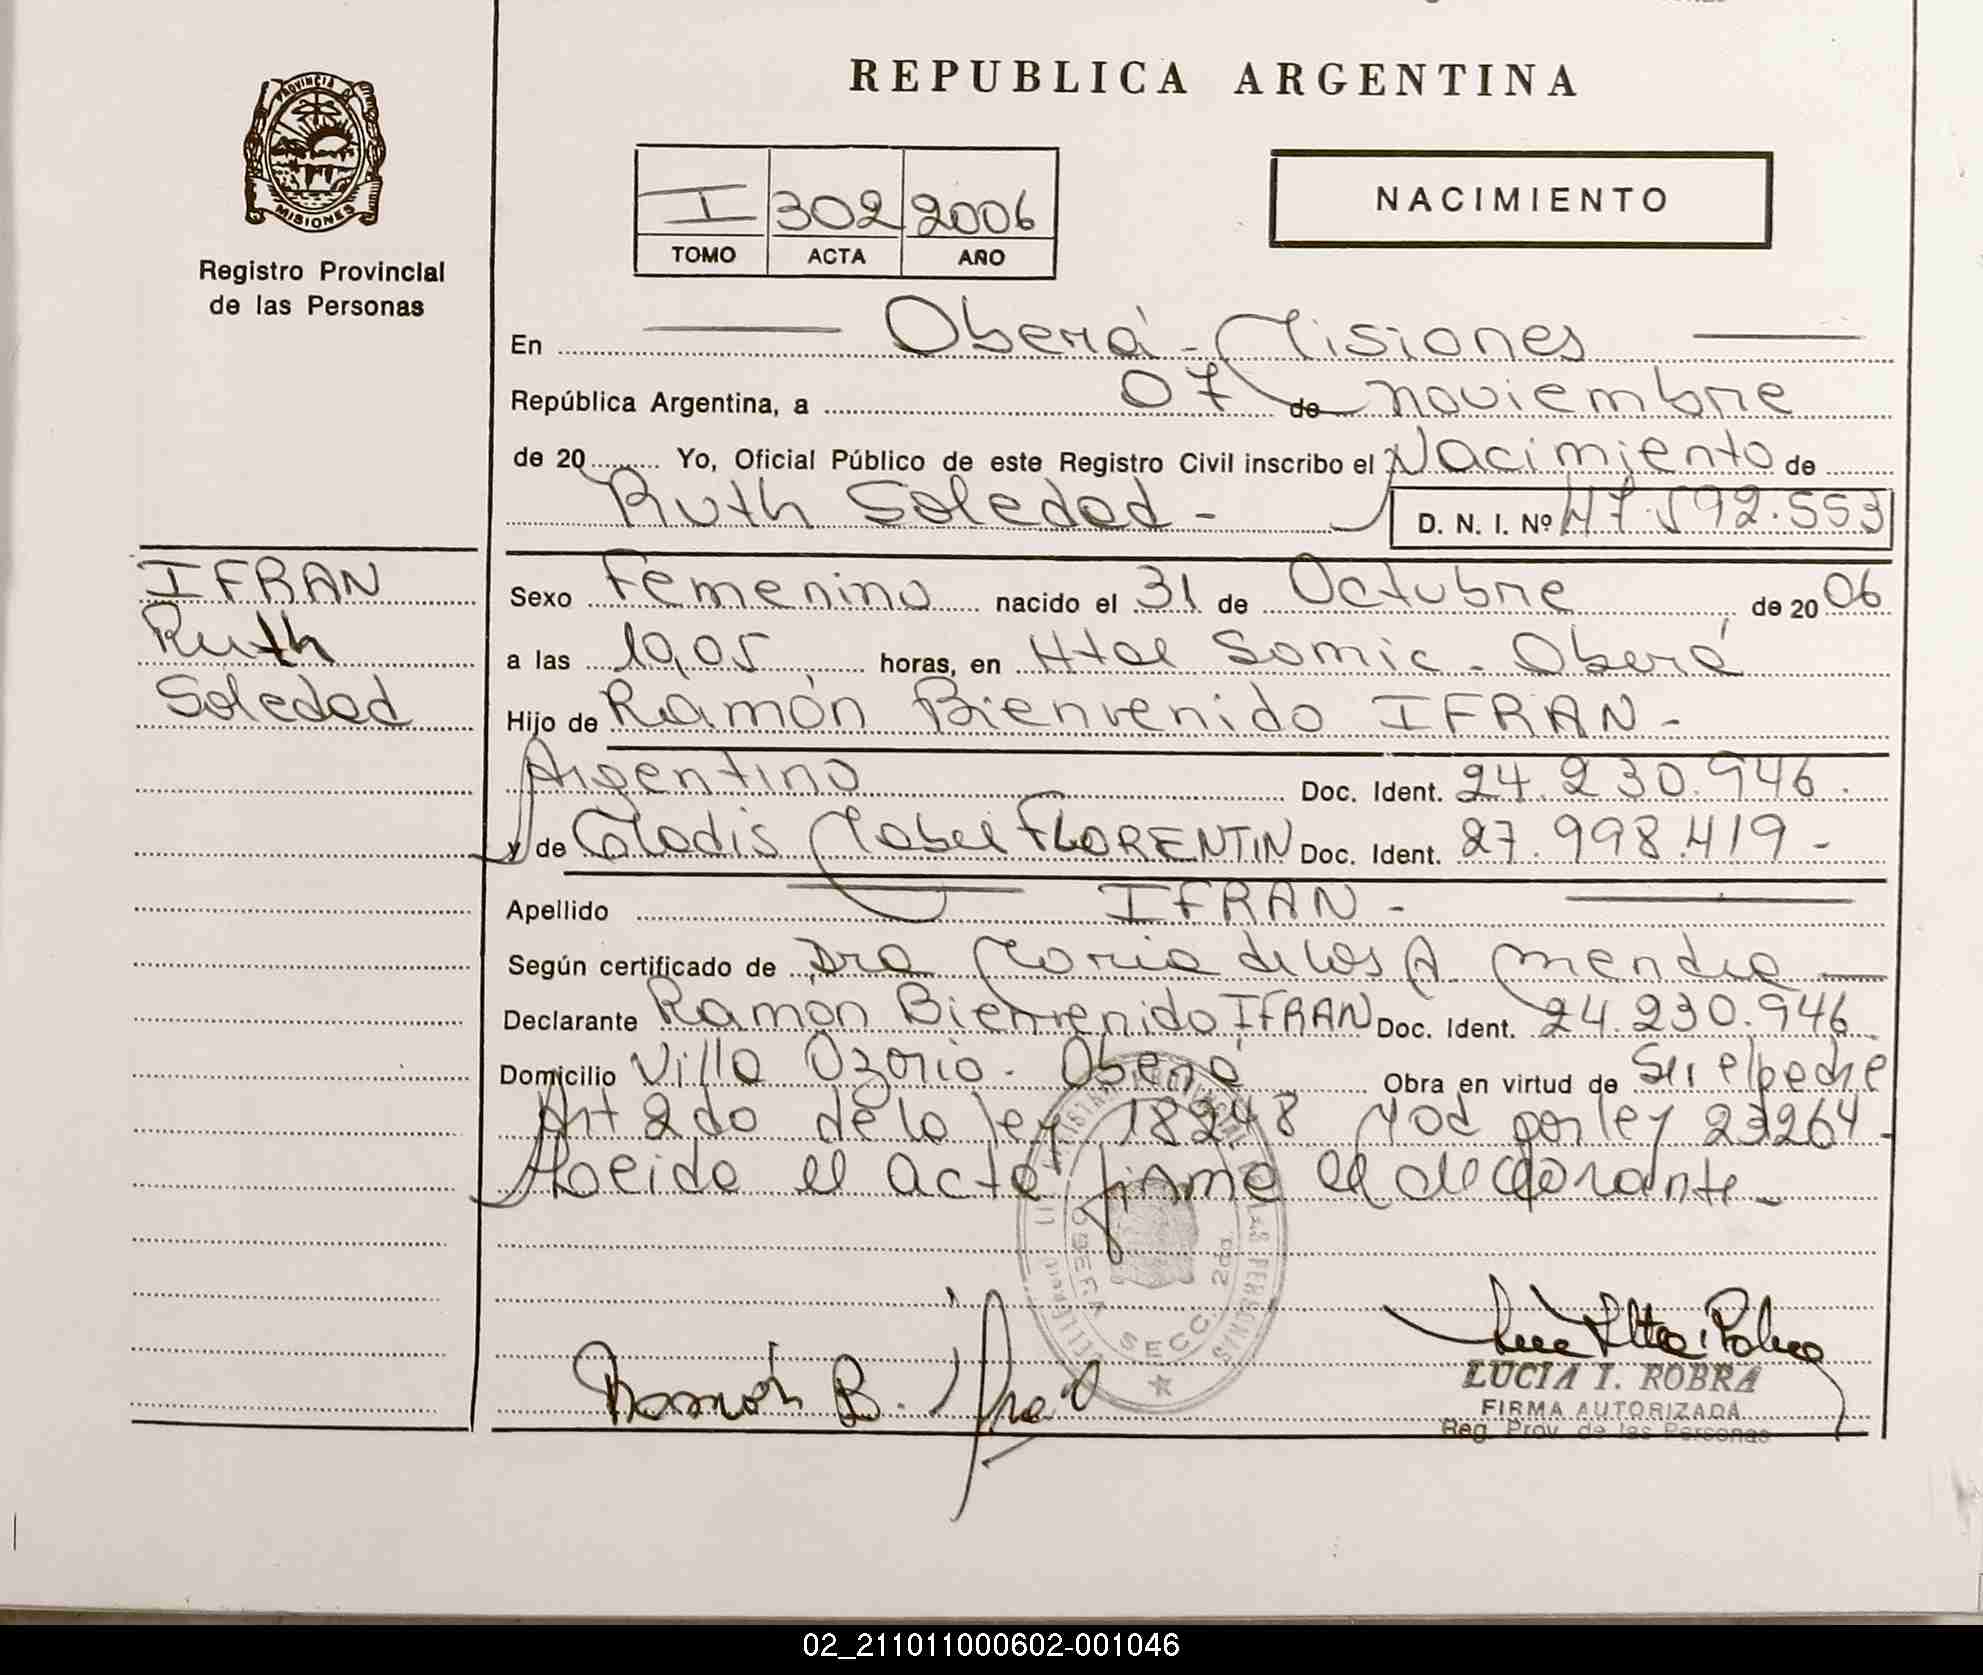 REPUBLICA ARGENTINA
PROVINCIA D
MISIONES
Registro Provincial
de las Personas
I 302 2006
TOMO ACTA AÑO
NACIMIENTO
En Oberá - Misiones
República Argentina, a 07 de noviembre
de 20 Yo, Oficial Público de este Registro Civil inscribo el Nacimiento de
Ruth Soledad - D. N. I. Nº 47.592.553
IFRAN
Ruth
Soledad
Sexo Femenino nacido el 31 de Octubre de 20 06
a las 19,05 horas, en Htal Samic - Oberá
Hijo de Ramón Bienvenido IFRAN -
Argentino Doc. Ident. 24.230.946.
y de Gladis Mabel FLORENTIN Doc. Ident. 27.998.419 -
Apellido IFRAN -
Según certificado de Dra Maria de los A Mendez
Declarante Ramón Bienvenido IFRAN Doc. Ident. 24.230.946
Domicilio Villa Ozorio - Oberá Obra en virtud de Ser el padre
Art 2do de la ley 18248 Mod por ley 23264 -
leida el acta firma el declarante -
OBERA SECC. 2da
Ramón B. Ifran
LUCIA I. ROBRA
FIRMA AUTORIZADA
Reg. Prov. de las Personas
02_211011000602-001046